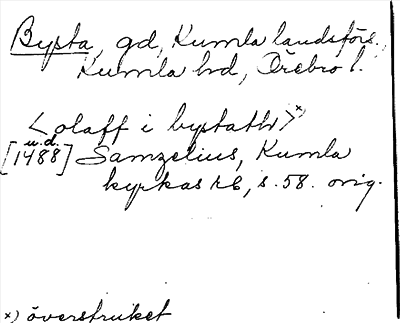 Bysta, gd, Kumla landsförs.,
Kumla hd, Örebro l.
<olaff i bystath>x)
u.d.
[1488] Samzelius, Kumla
kyrkas rb, s. 58. orig.
x) överstruket